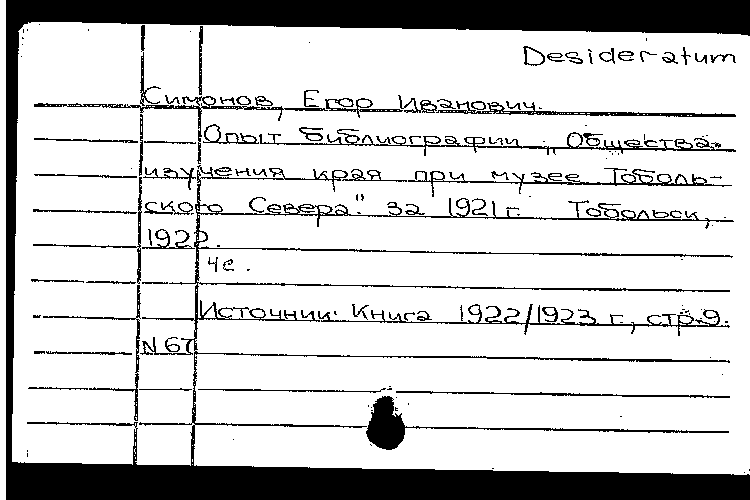 Desideratum
Симонов, Егор Иванович.
Опыт библиографии „Общества
изучения края при музее Тоболь-
ского Севера." за 1921 г. Тобольск,
1922.
4с.
Источник: Книга 1922/1923 г., стр.9.
N 67